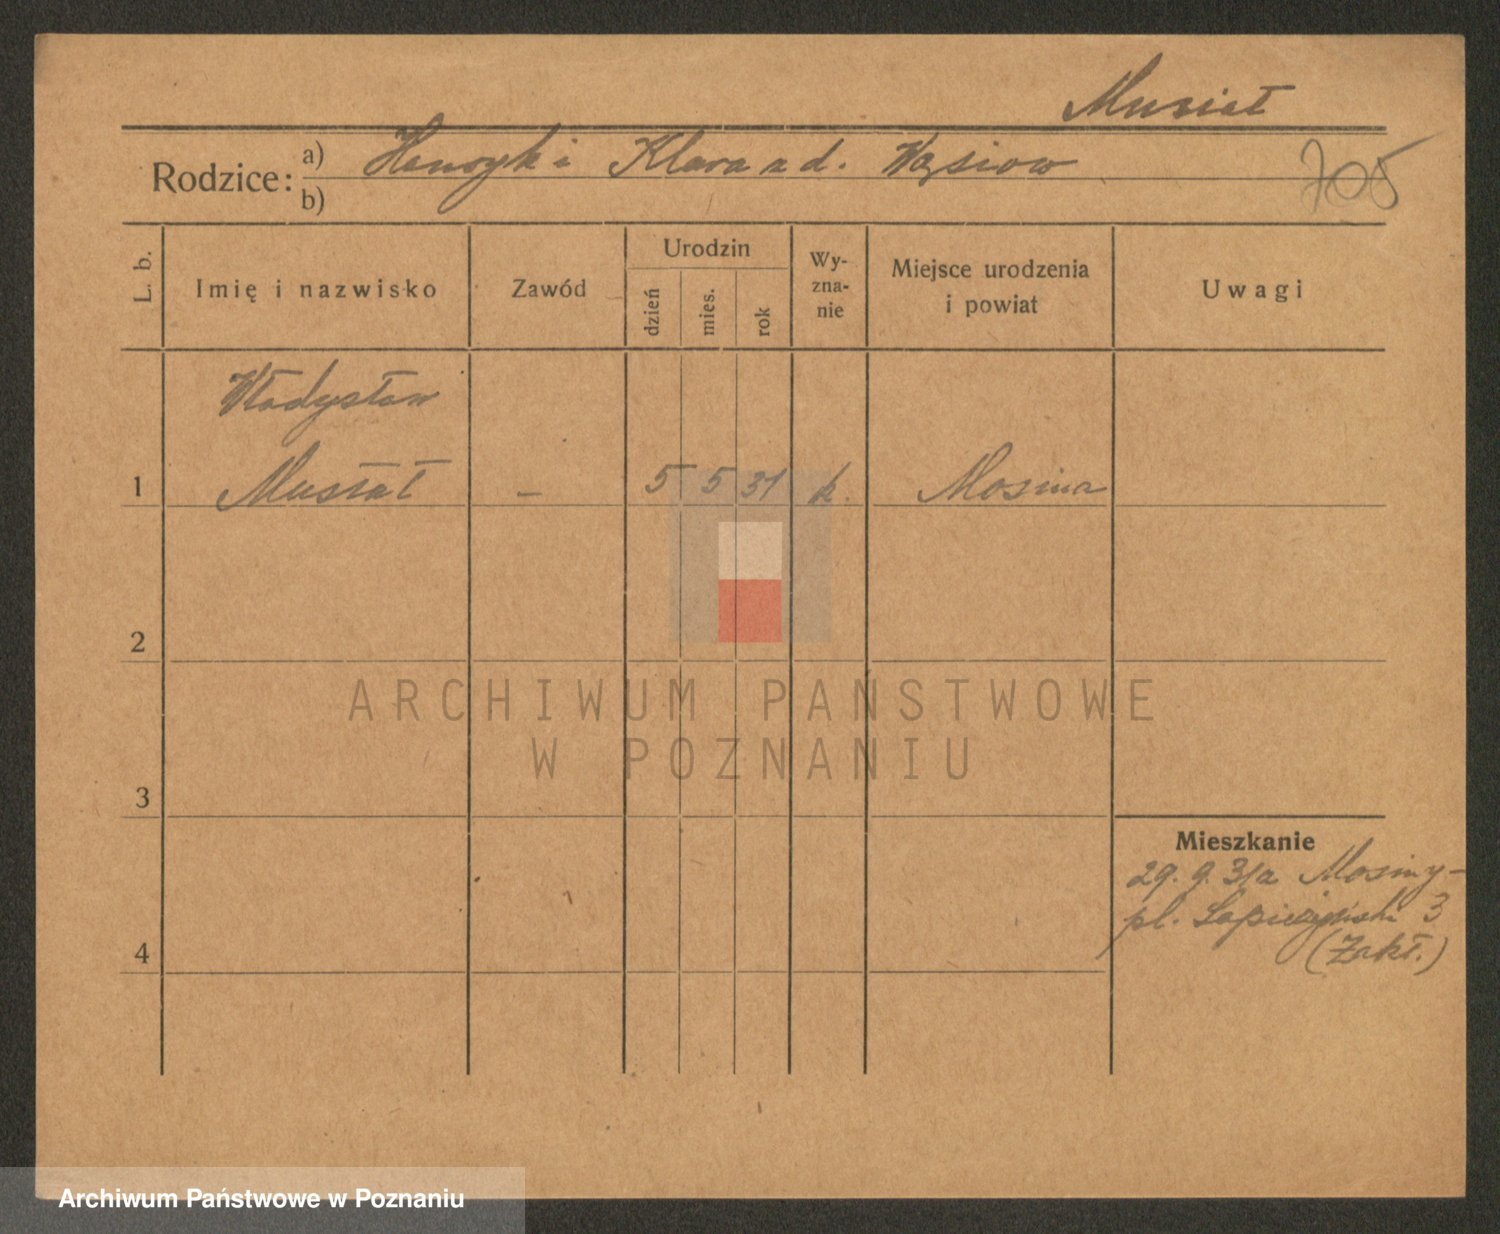 Musiał
Rodzice: a) Henryk i Klara z d. Wąsiow
b)
705
L. b.
Imię i nazwisko
Zawód
Urodzin
dzień
mies.
rok
Wy-
zna-
nie
Miejsce urodzenia
i powiat
Uwagi
Władysław
1 Musiał – 5 5 31 k. Mosina
2
3
4
Mieszkanie
29. 9. 31 z Mosiny -
pl. 3
(Zakł.)
ARCHIWUM PAŃSTWOWE
W POZNANIU
Archiwum Państwowe w Poznaniu